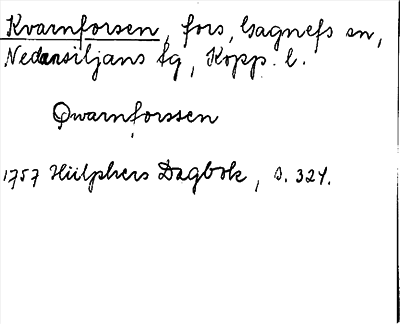 Kvarnforsen, fors, Gagnefs sn,
Nedansiljans fg, Kopp. l.
Qwarnforssen
1757 Hülphers Dagbok, s. 324.